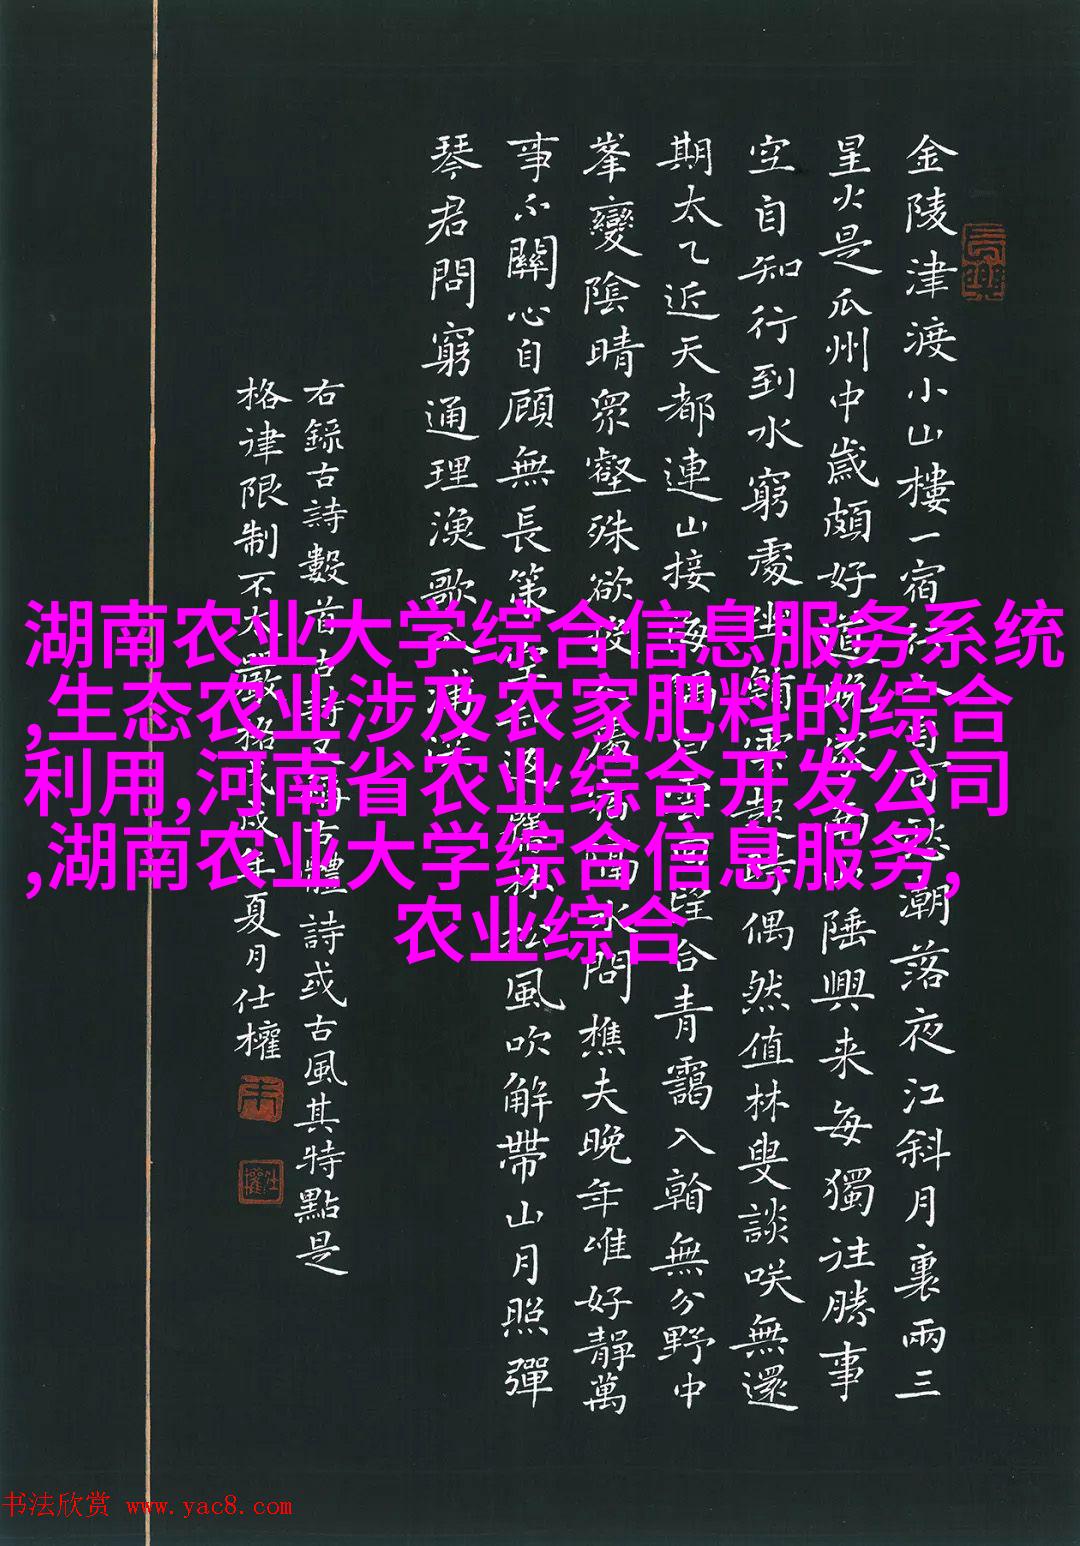 金陵津渡小山樓一宿行人自可愁潮落夜江斜月裏兩三
星火是瓜州中歲頗好道晚家南山陲興来每獨往勝事
空自知行到水窮處坐看雲起時偶然值林叟談咲無還
期太乙近天都連山接海隅白雲回望合青靄入看無分野中
峯變陰晴衆壑殊欲投人處宿隔水問樵夫晚年唯好靜萬
事不關心自顧無長策空知返舊林松風吹解帶山月照彈
琴君問窮通理漁歌入浦深
右錄古詩數首古詩又稱古體詩或古風其特點是
格律限制不太嚴格戊戌年夏月仕權
湖南农业大学综合信息服务系统
,生态农业涉及农家肥料的综合
利用,河南省农业综合开发公司
,湖南农业大学综合信息服务,
农业综合
书法欣赏 www.yac8.com